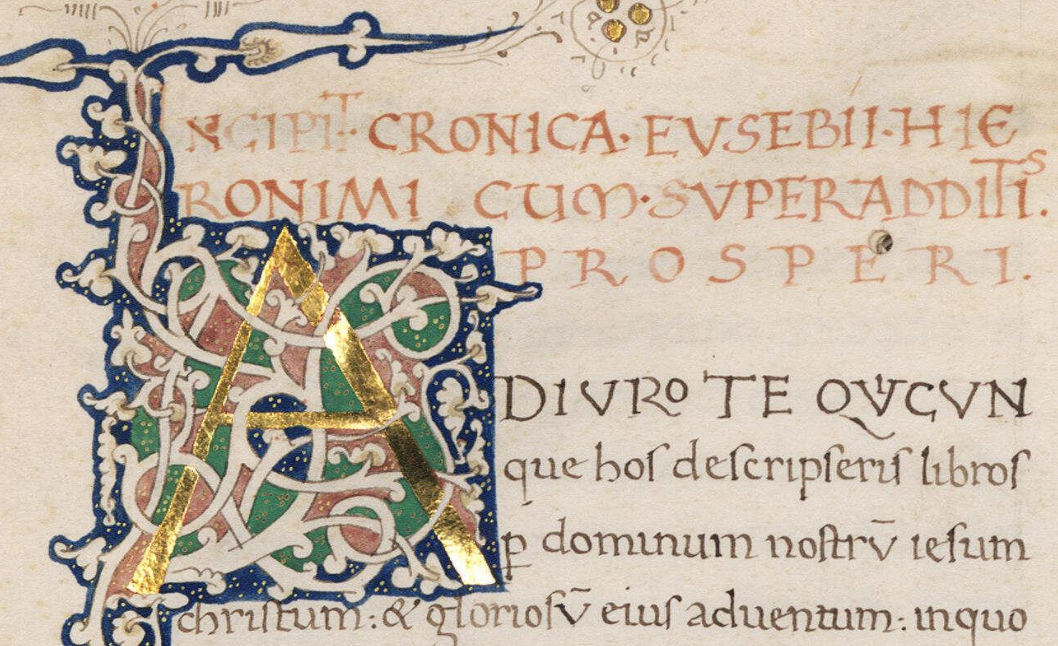 INCIPIT· CRONICA· EVSEBII· HIE
RONIMI CUM· SVPERADDITIS.
PROSPERI.
ADIVRO TE QVICVN
que hoſ deſcripſeriſ libroſ
ꝑ dominum noſtrū ieſum
chriſtum: & glorioſū eiuſ aduentum: inquo